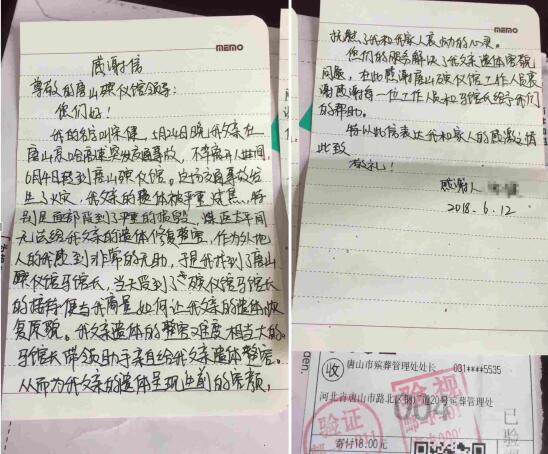 MEMO
感谢信
尊敬的唐山殡仪馆领导:
您们好!
5月24日晚我父亲在
唐山京哈高速突发交通事故,不幸离开人世间,
6月4日转到唐山殡仪馆。
生了火灾,我父亲的遗体被严重烧焦,特
别是面部
无法给我父亲的遗体修复整容,作为外地
人的我感到非常的无助,于是我找到了唐山
殡仪馆马馆长,当天受到了殡仪馆马馆长
的接待便当我商量如何让我父亲的遗体恢
复原貌。我父亲遗体的整容难度相当大的。
马馆长带领助手亲自给我父亲遗体整容。
从而为我父亲的遗体呈现生前的容颜,
MEMO
抚慰了我和我家人悲恸的心灵。
您们的服务解决了我父亲遗体容貌
问题,在此感谢唐山殡仪馆工作人员衷
谢感谢每一位工作人员和马馆长给予我们
的帮助。
特以此信表达我和家人的感激之情
此致
敬礼!
感谢人
2018.6.12
收
唐山市殡葬管理处处长 031****5535
河北省唐山市路北区钢厂道20号殡葬管理处
验视
004
验证
寄付18.00元
已验